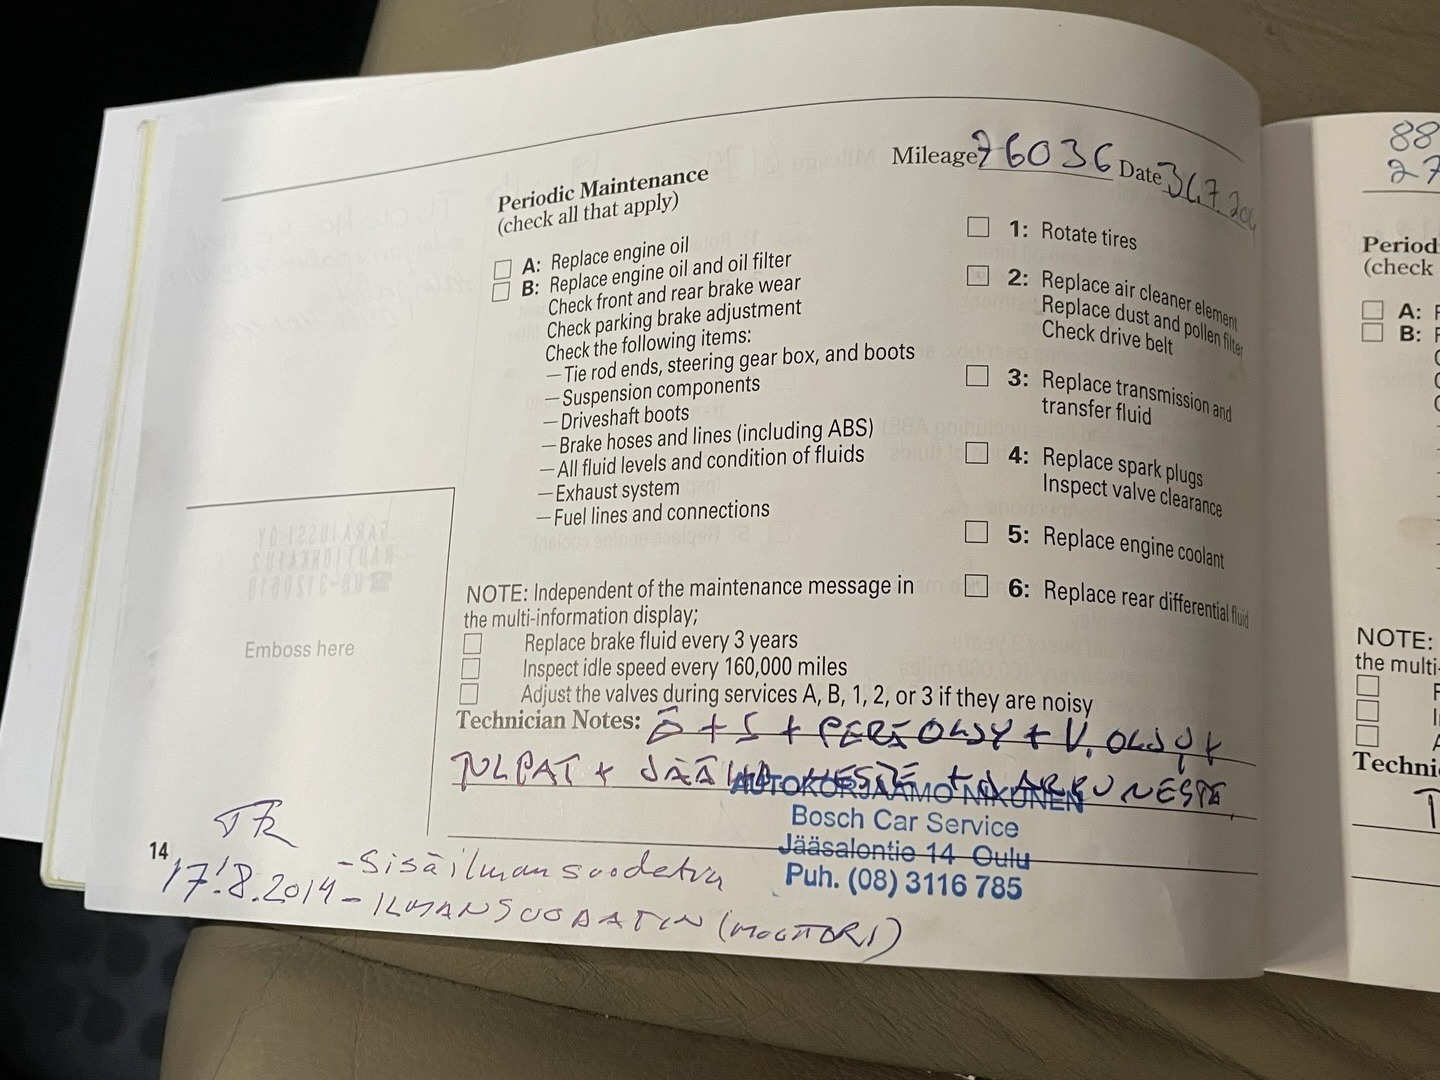 Mileage 76036 Date 31.7.201
Periodic Maintenance
(check all that apply)
A: Replace engine oil
B: Replace engine oil and oil filter
Check front and rear brake wear
Check parking brake adjustment
Check the following items:
—Tie rod ends, steering gear box, and boots
—Suspension components
—Driveshaft boots
—Brake hoses and lines (including ABS)
—All fluid levels and condition of fluids
—Exhaust system
—Fuel lines and connections
1: Rotate tires
2: Replace air cleaner element
Replace dust and pollen filter
Check drive belt
3: Replace transmission and
transfer fluid
4: Replace spark plugs
Inspect valve clearance
5: Replace engine coolant
6: Replace rear differential fluid
NOTE: Independent of the maintenance message in
the multi-information display;
Replace brake fluid every 3 years
Inspect idle speed every 160,000 miles
Adjust the valves during services A, B, 1, 2, or 3 if they are noisy
Technician Notes: Ö + S + PERÄÖLJY + V. ÖLJY +
TULPAT + JÄÄHD NESTE + JARRUNESTE
AUTOKORJAAMO NIKUNEN
Bosch Car Service
Jääsalontie 14 Oulu
Puh. (08) 3116 785
Emboss here
14
17.8.2014 - Sisäilmansuodatin
- ILMANSUODATIN (MOOTTORI)
88
27
Period
(check
A:
B:
NOTE:
the multi-
Techni